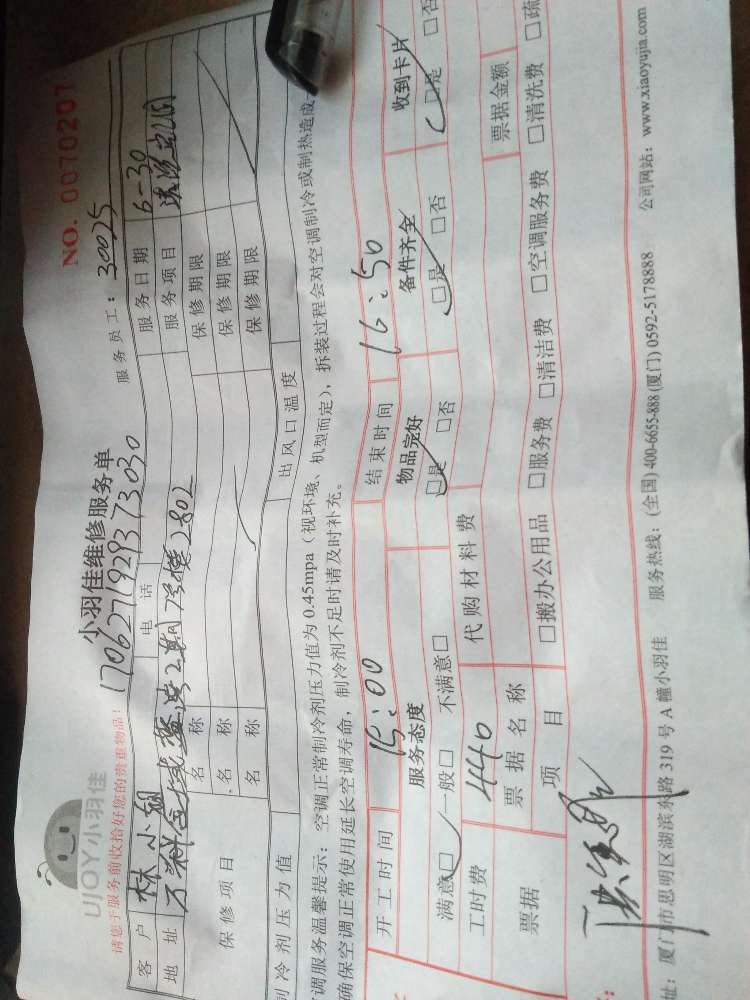 UJOY小羽佳
请您于服务前收拾好您的贵重物品!
小羽佳维修服务单
NO. 0070207
170627192937 3030
服务员工: 30025
客户 林小姐 电话 服务日期 6-30
地址 万科金域 2期7号楼2802 服务项目
保修项目 名称 保修期限
名称 保修期限
名称 保修期限
制冷剂压力值 出风口温度
调服务温馨提示: 空调正常制冷剂压力值为 0.45mpa (视环境、机型而定), 拆装过程会对空调制冷或制热造成
确保空调正常使用延长空调寿命, 制冷剂不足时请及时补充。
开工时间 15:00 结束时间 16:50
服务态度 物品完好 备件齐全 收到卡片
满意☑ 一般□ 不满意□ ☑是 □否 ☑是 □否 ☑是 □否
工时费 440 代购材料费
票据 票据名称 票据金额
项目 □搬办公用品 □服务费 □清洁费 □空调服务费 □清洗费 □疏
址: 厦门市思明区湖滨东路 319 号 A 幢小羽佳 服务热线: (全国) 400-6655-888 (厦门) 0592-5178888 公司网站: www.xiaoyujia.com